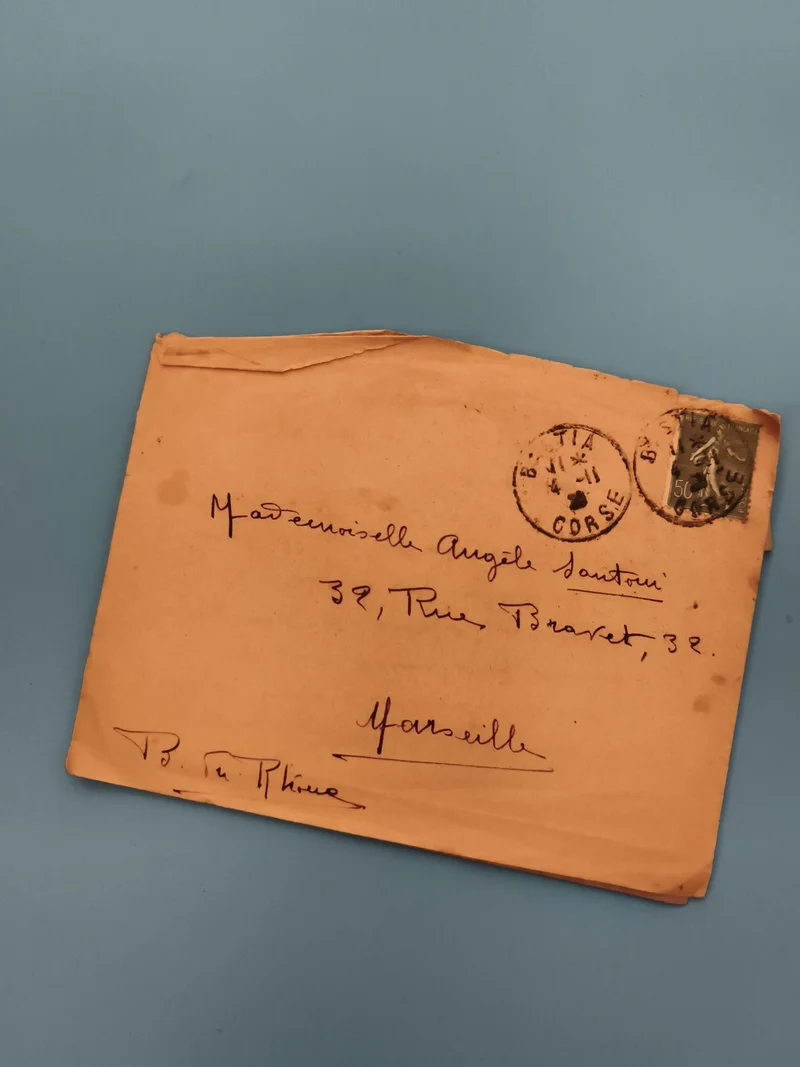 BASTIA
11 *
4 -11
CORSE
BASTIA
CORSE
50
Mademoiselle Angèle Santoni
32, Rue Bravet, 32.
Marseille
B. du Rhône